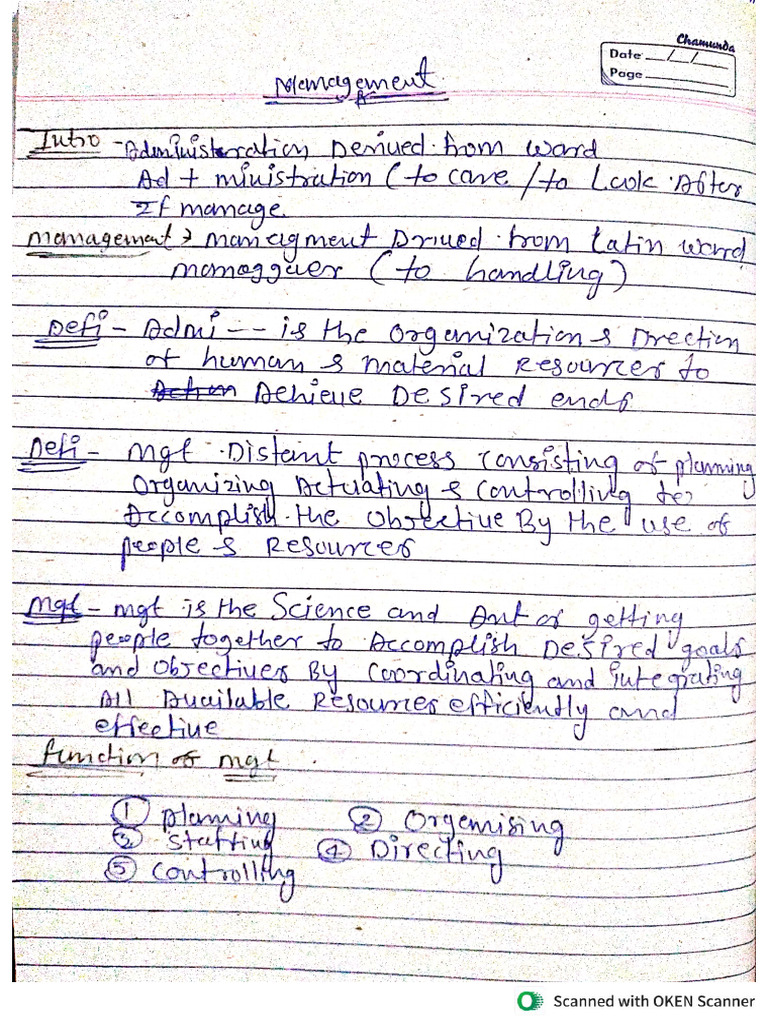 Chamunda
Date __/__/__
Page
Management
Intro - Administration Derived from word
Ad + ministration ( to care / to Look After
If manage
management → managment Drived from Latin word
(to handling)
Defi - Admi -- is the organization & Direction
of human & material Resources to
Action Achieve Desired ends
Defi - mgt Distaint process consisting of planning
organizing Actuating & controlling to
Accomplish the objective By the use of
people & Resources
mgt - mgt is the Science and Art of getting
people together to Accomplish Desired goals
and objectives By coordinating and integrating
All Available Resources efficiently and
effective
function of mgt
① planning ② Orgenising
③ staffing ④ Directing
⑤ controlling
Scanned with OKEN Scanner